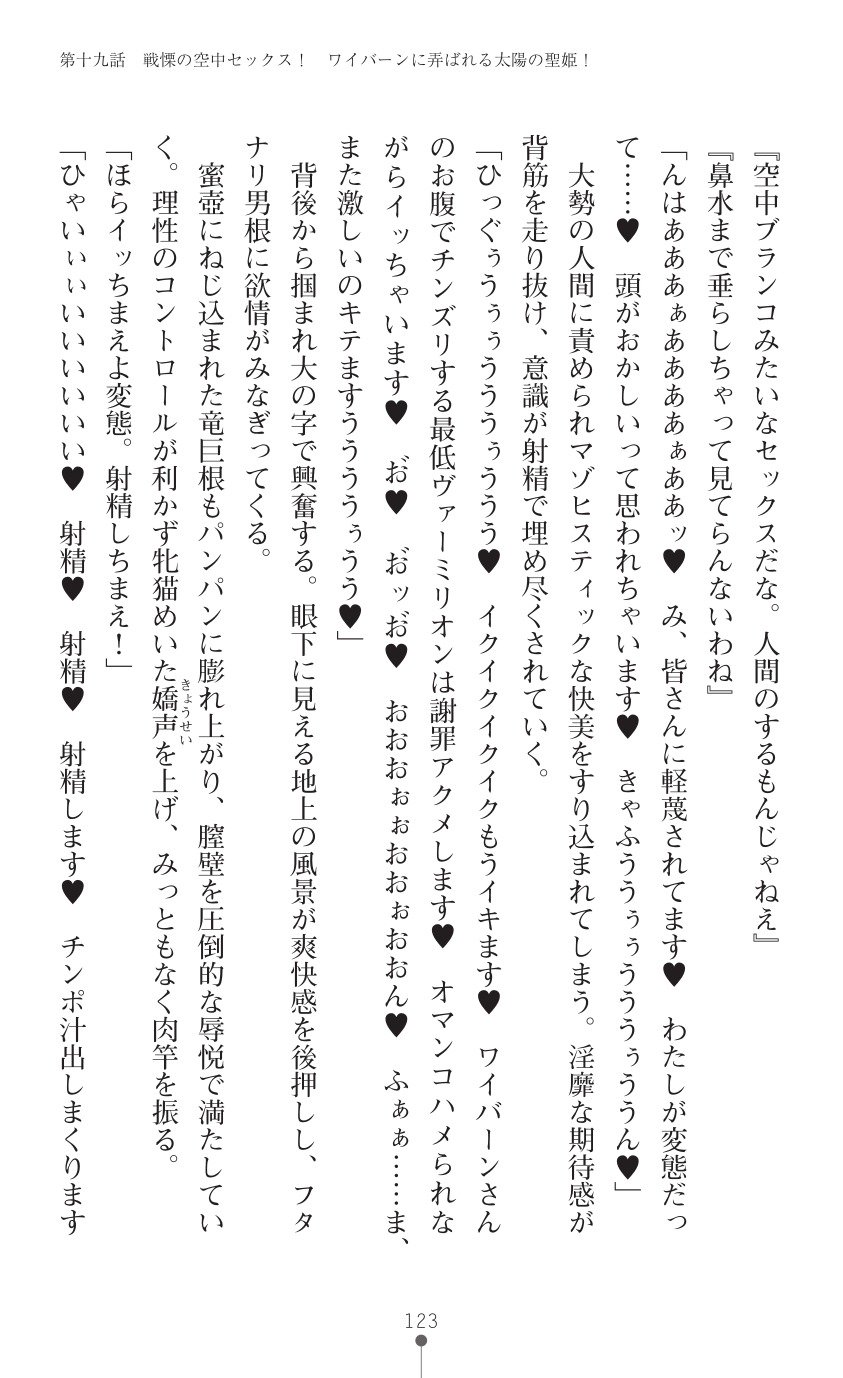 第十九話　戦慄の空中セックス！　ワイバーンに弄ばれる太陽の聖姫！
『空中ブランコみたいなセックスだな。人間のするもんじゃねえ』
『鼻水まで垂らしちゃって見てらんないわね』
「んはあああぁああああぁああッ♥　み、皆さんに軽蔑されてます♥　わたしが変態だっ
て……♥　頭がおかしいって思われちゃいます♥　きゃふううぅぅうううぅううん♥」
　大勢の人間に責められマゾヒスティックな快美をすり込まれてしまう。淫靡な期待感が
背筋を走り抜け、意識が射精で埋め尽くされていく。
「ひっぐぅうぅぅうううぅううう♥　イクイクイクイクもうイキます♥　ワイバーンさん
のお腹でチンズリする最低ヴァーミリオンは謝罪アクメします♥　オマンコハメられな
がらイッちゃいます♥　お゛♥　お゛ッお゛♥　おおおぉぉおおぉおおん♥　ふぁぁ……ま、
また激しいのキてますうううぅうう♥」
　背後から掴まれ大の字で興奮する。眼下に見える地上の風景が爽快感を後押しし、フタ
ナリ男根に欲情がみなぎってくる。
　蜜壺にねじ込まれた竜巨根もパンパンに膨れ上がり、膣壁を圧倒的な辱悦で満たしてい
く。理性のコントロールが利かず牝猫めいた嬌声を上げ、みっともなく肉竿を振る。
きょうせい
「ほらイッちまえよ変態。射精しちまえ！」
「ひゃいぃぃいいいいいいい♥　射精♥　射精♥　射精します♥　チンポ汁出しまくります
123